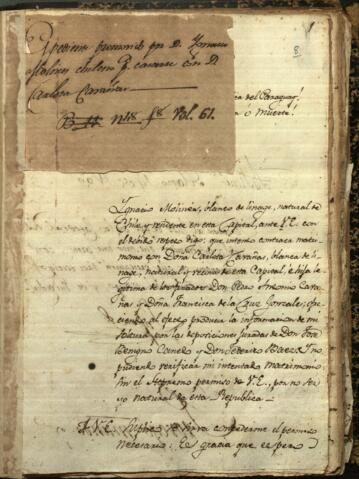 Expediente promovido por D. Ignacio
Molines chileno p.ª casarse con D.ª
Carlota Carañas
N.º 18 f.s 8 Vol. 61.
1
8
ca del Paraguay!
a o muerte!
Ignacio Molines, blanco de linage, natural de
Chile y residente en esta Capital, ante V.E. con
el debido respeto digo: que intento contraer matri-
monio con Doña Carlota Carañas, blanca de li-
nage, natural y vecina de esta Capital, é hija le-
gitima de los finados Don Pedro Antonio Cara-
ñas y Doña Francisca de la Cruz Gonzalez; ofre-
ciendo al efecto producir la informacion de mi
soltura por las deposiciones juradas de Don José
Benigno Canete y Don Seferino Baez. Y no
pudiendo verificar mi intentado matrimonio
sin el Supremo permiso de V.E., por no ser
yo natural de esta Republica
A V.E. suplico se sirva concederme el permiso
necesario: Es gracia que espero